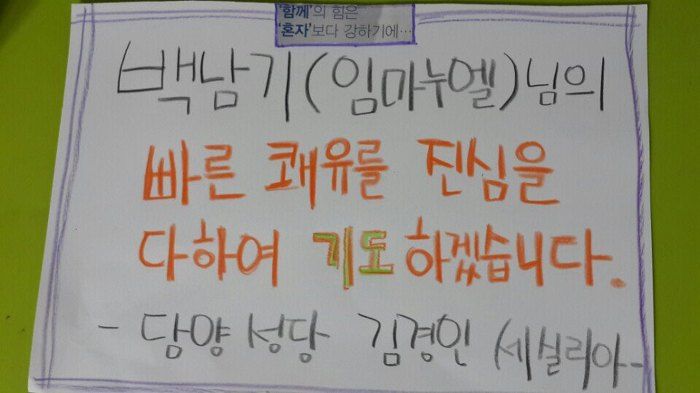 '함께'의 힘은
'혼자'보다 강하기에…
백남기(임마누엘)님의
빠른 쾌유를 진심을
다하여 기도하겠습니다.
- 담양성당 김경인 (세실리아-